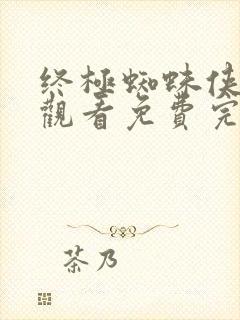 終極蜘蛛俠
觀看免費完
茶乃